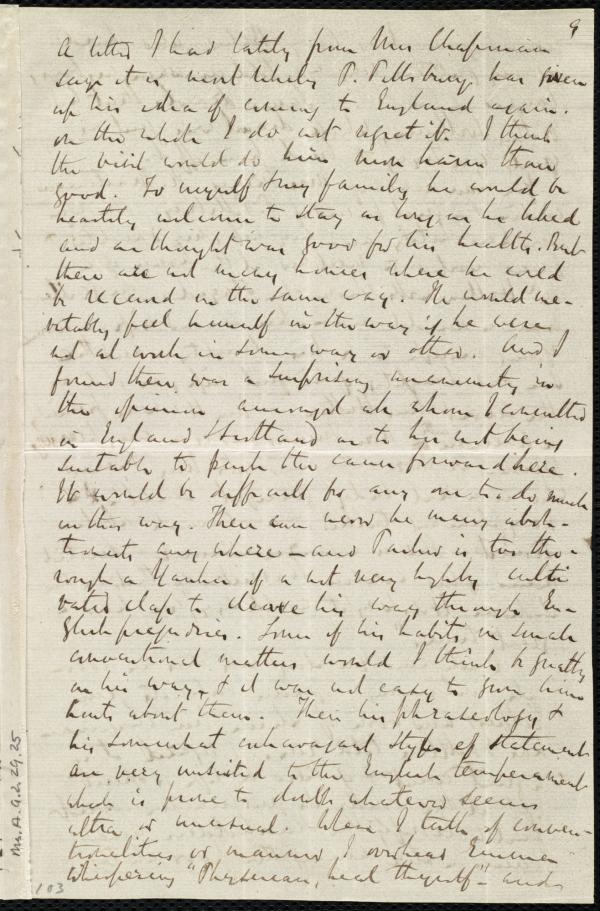 9
A letter I had lately from Mrs Chapman
says it is most likely P. Pillsbury has given
up his idea of coming to England again.
on the whole I do not regret it. I think
the visit would do him more harm than
good. To myself & my family he would be
heartily welcome to stay as long as he liked
and as thought was good for his health. But
there are not many homes where he could
be received in the same way. He would ine-
vitably feel himself in the way if he were
not at work in some way or other. And I
found there was a surprising unanimity in
the opinion amongst all whom I consulted
in England & Scotland as to his not being
suitable to push the cause forward here.
It would be difficult for any one to do much
in this way. There can never be many aboli-
tionists any where — and Parker is too tho-
rough a Yankee of a not very highly culti
vated class to cleave his way through En-
glish prejudices. Some of his habits in small
conventional matters would I think be greatly
in his way, & it was not easy to give him
hints about them. Then his phraseology &
his somewhat extravagant style of statement
are very unsuited to the English temperament
which is prone to doubt whatever seems
ultra or unusual. When I talk of conven-
tionalities or manners I overhear Emma
whispering "Physician, heal thyself" and
Ms.A.9.2.29.25
103